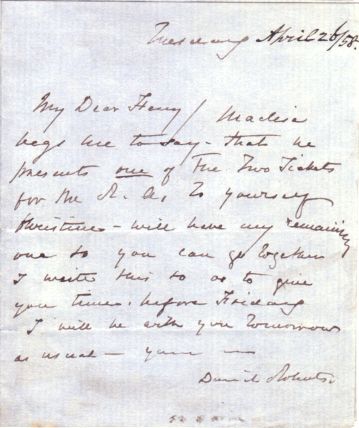 Tuesday April 26/58.
My Dear Henry / Maclise
begs me to say - that he
presents one of the Two Tickets
for the R. A. to yourself
Christine - will have my remaining
one so you can go together
I write this so as to give
you time. before Friday
I will be with you tomorrow
as usual - your
David Roberts